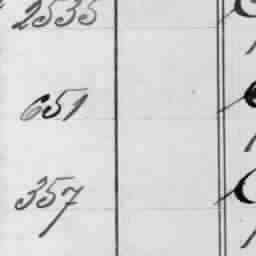 2535
651
357